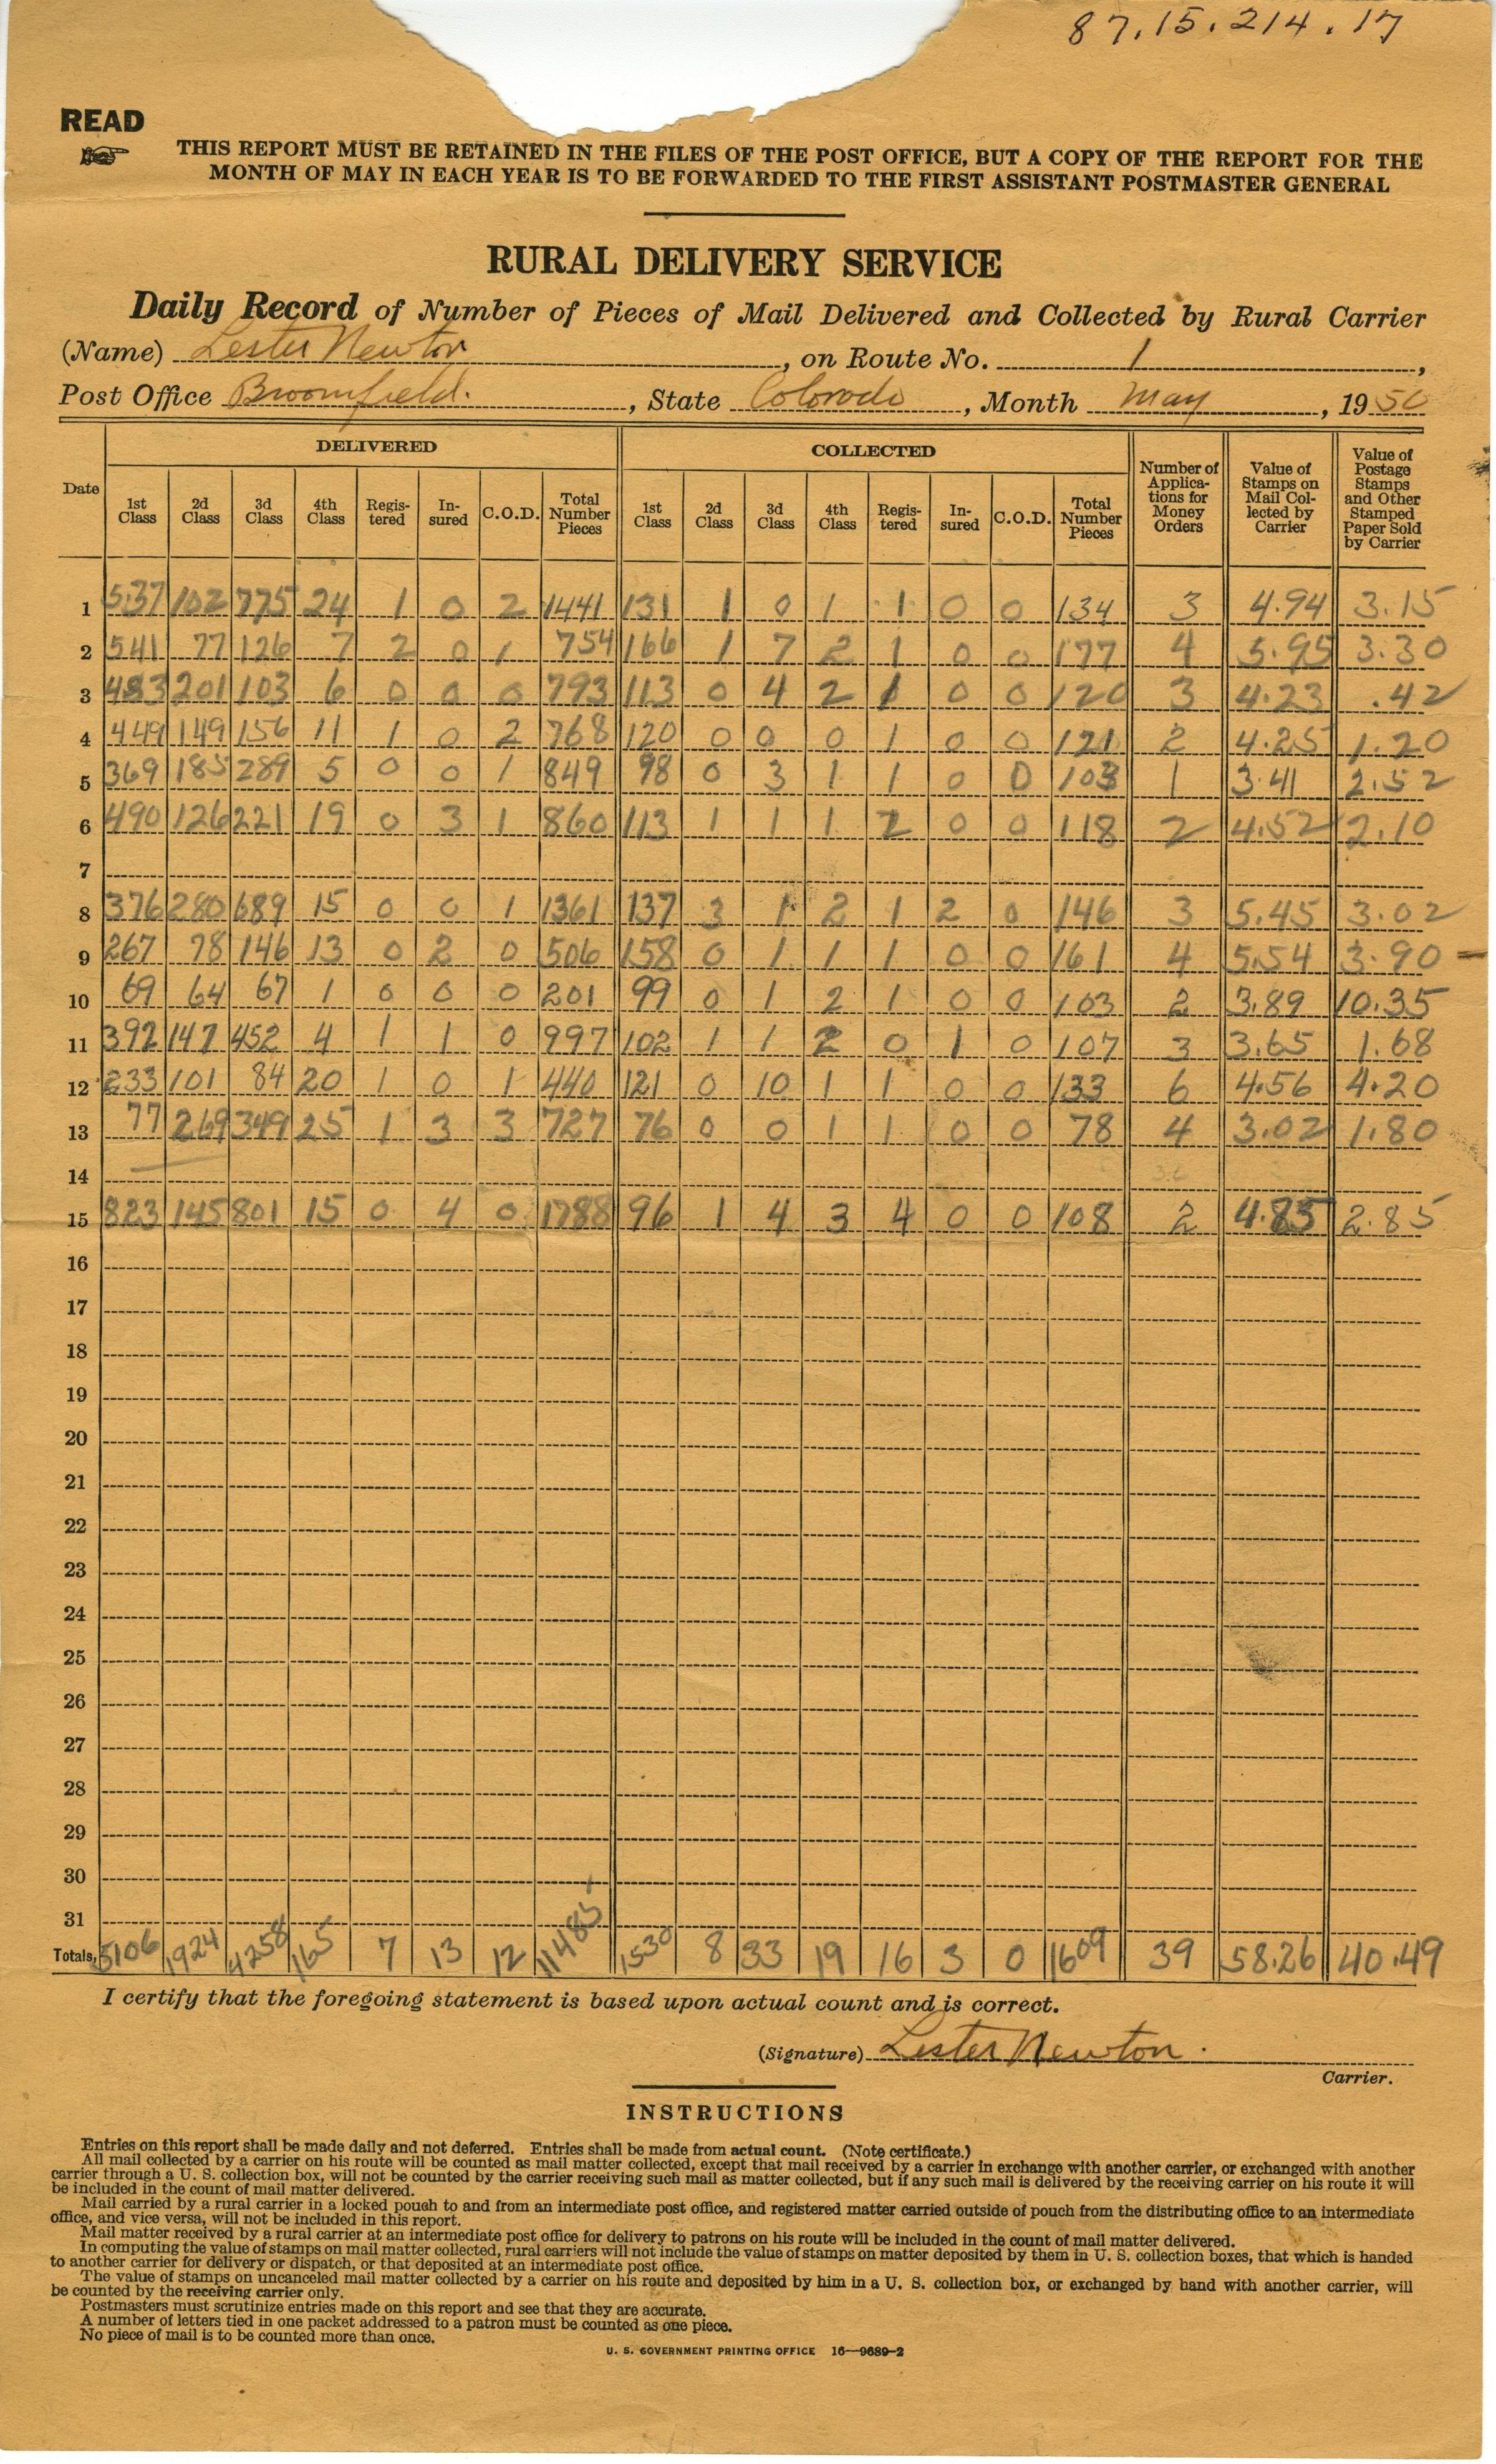 87.15.214.17
READ
THIS REPORT MUST BE RETAINED IN THE FILES OF THE POST OFFICE, BUT A COPY OF THE REPORT FOR THE
MONTH OF MAY IN EACH YEAR IS TO BE FORWARDED TO THE FIRST ASSISTANT POSTMASTER GENERAL
RURAL DELIVERY SERVICE
Daily Record of Number of Pieces of Mail Delivered and Collected by Rural Carrier
(Name) Lester Newton, on Route No. 1,
Post Office Broomfield., State Colorado, Month May, 1950
DELIVERED COLLECTED
Date 1st Class 2d Class 3d Class 4th Class Regis-tered In-sured C.O.D. Total Number Pieces 1st Class 2d Class 3d Class 4th Class Regis-tered In-sured C.O.D. Total Number Pieces Number of Applica-tions for Money Orders Value of Stamps on Mail Col-lected by Carrier Value of Postage Stamps and Other Stamped Paper Sold by Carrier
1 537 102 775 24 1 0 2 1441 131 1 0 1 1 0 0 134 3 4.94 3.15
2 541 77 126 7 2 0 1 754 166 1 7 2 1 0 0 177 4 5.95 3.30
3 483 201 103 6 0 0 0 793 113 0 4 2 1 0 0 120 3 4.23 .42
4 449 149 156 11 1 0 2 768 120 0 0 0 1 0 0 121 2 4.25 1.20
5 369 185 289 5 0 0 1 849 98 0 3 1 1 0 0 103 1 3.41 2.52
6 490 126 221 19 0 3 1 860 113 1 1 1 2 0 0 118 2 4.52 2.10
7
8 376 280 689 15 0 0 1 1361 137 3 1 2 1 2 0 146 3 5.45 3.02
9 267 78 146 13 0 2 0 506 158 0 1 1 1 0 0 161 4 5.54 3.90
10 69 64 67 1 0 0 0 201 99 0 1 2 1 0 0 103 2 3.89 10.35
11 392 147 452 4 1 1 0 997 102 1 1 2 0 1 0 107 3 3.65 1.68
12 233 101 84 20 1 0 1 440 121 0 10 1 1 0 0 133 6 4.56 4.20
13 77 269 349 25 1 3 3 727 76 0 0 1 1 0 0 78 4 3.02 1.80
14
15 823 145 801 15 0 4 0 1788 96 1 4 3 4 0 0 108 2 4.85 2.85
16
17
18
19
20
21
22
23
24
25
26
27
28
29
30
31
Totals, 5106 1924 4258 165 7 13 12 11485 1530 8 33 19 16 3 0 1609 39 58.26 40.49
I certify that the foregoing statement is based upon actual count and is correct.
(Signature) Lester Newton.
Carrier.
INSTRUCTIONS
Entries on this report shall be made daily and not deferred. Entries shall be made from actual count. (Note certificate.)
All mail collected by a carrier on his route will be counted as mail matter collected, except that mail received by a carrier in exchange with another carrier, or exchanged with another
carrier through a U. S. collection box, will not be counted by the carrier receiving such mail as matter collected, but if any such mail is delivered by the receiving carrier on his route it will
be included in the count of mail matter delivered.
Mail carried by a rural carrier in a locked pouch to and from an intermediate post office, and registered matter carried outside of pouch from the distributing office to an intermediate
office, and vice versa, will not be included in this report.
Mail matter received by a rural carrier at an intermediate post office for delivery to patrons on his route will be included in the count of mail matter delivered.
In computing the value of stamps on mail matter collected, rural carriers will not include the value of stamps on matter deposited by them in U. S. collection boxes, that which is handed
to another carrier for delivery or dispatch, or that deposited at an intermediate post office.
The value of stamps on uncanceled mail matter collected by a carrier on his route and deposited by him in a U. S. collection box, or exchanged by hand with another carrier, will
be counted by the receiving carrier only.
Postmasters must scrutinize entries made on this report and see that they are accurate.
A number of letters tied in one packet addressed to a patron must be counted as one piece.
No piece of mail is to be counted more than once.
U. S. GOVERNMENT PRINTING OFFICE 16—9689-2